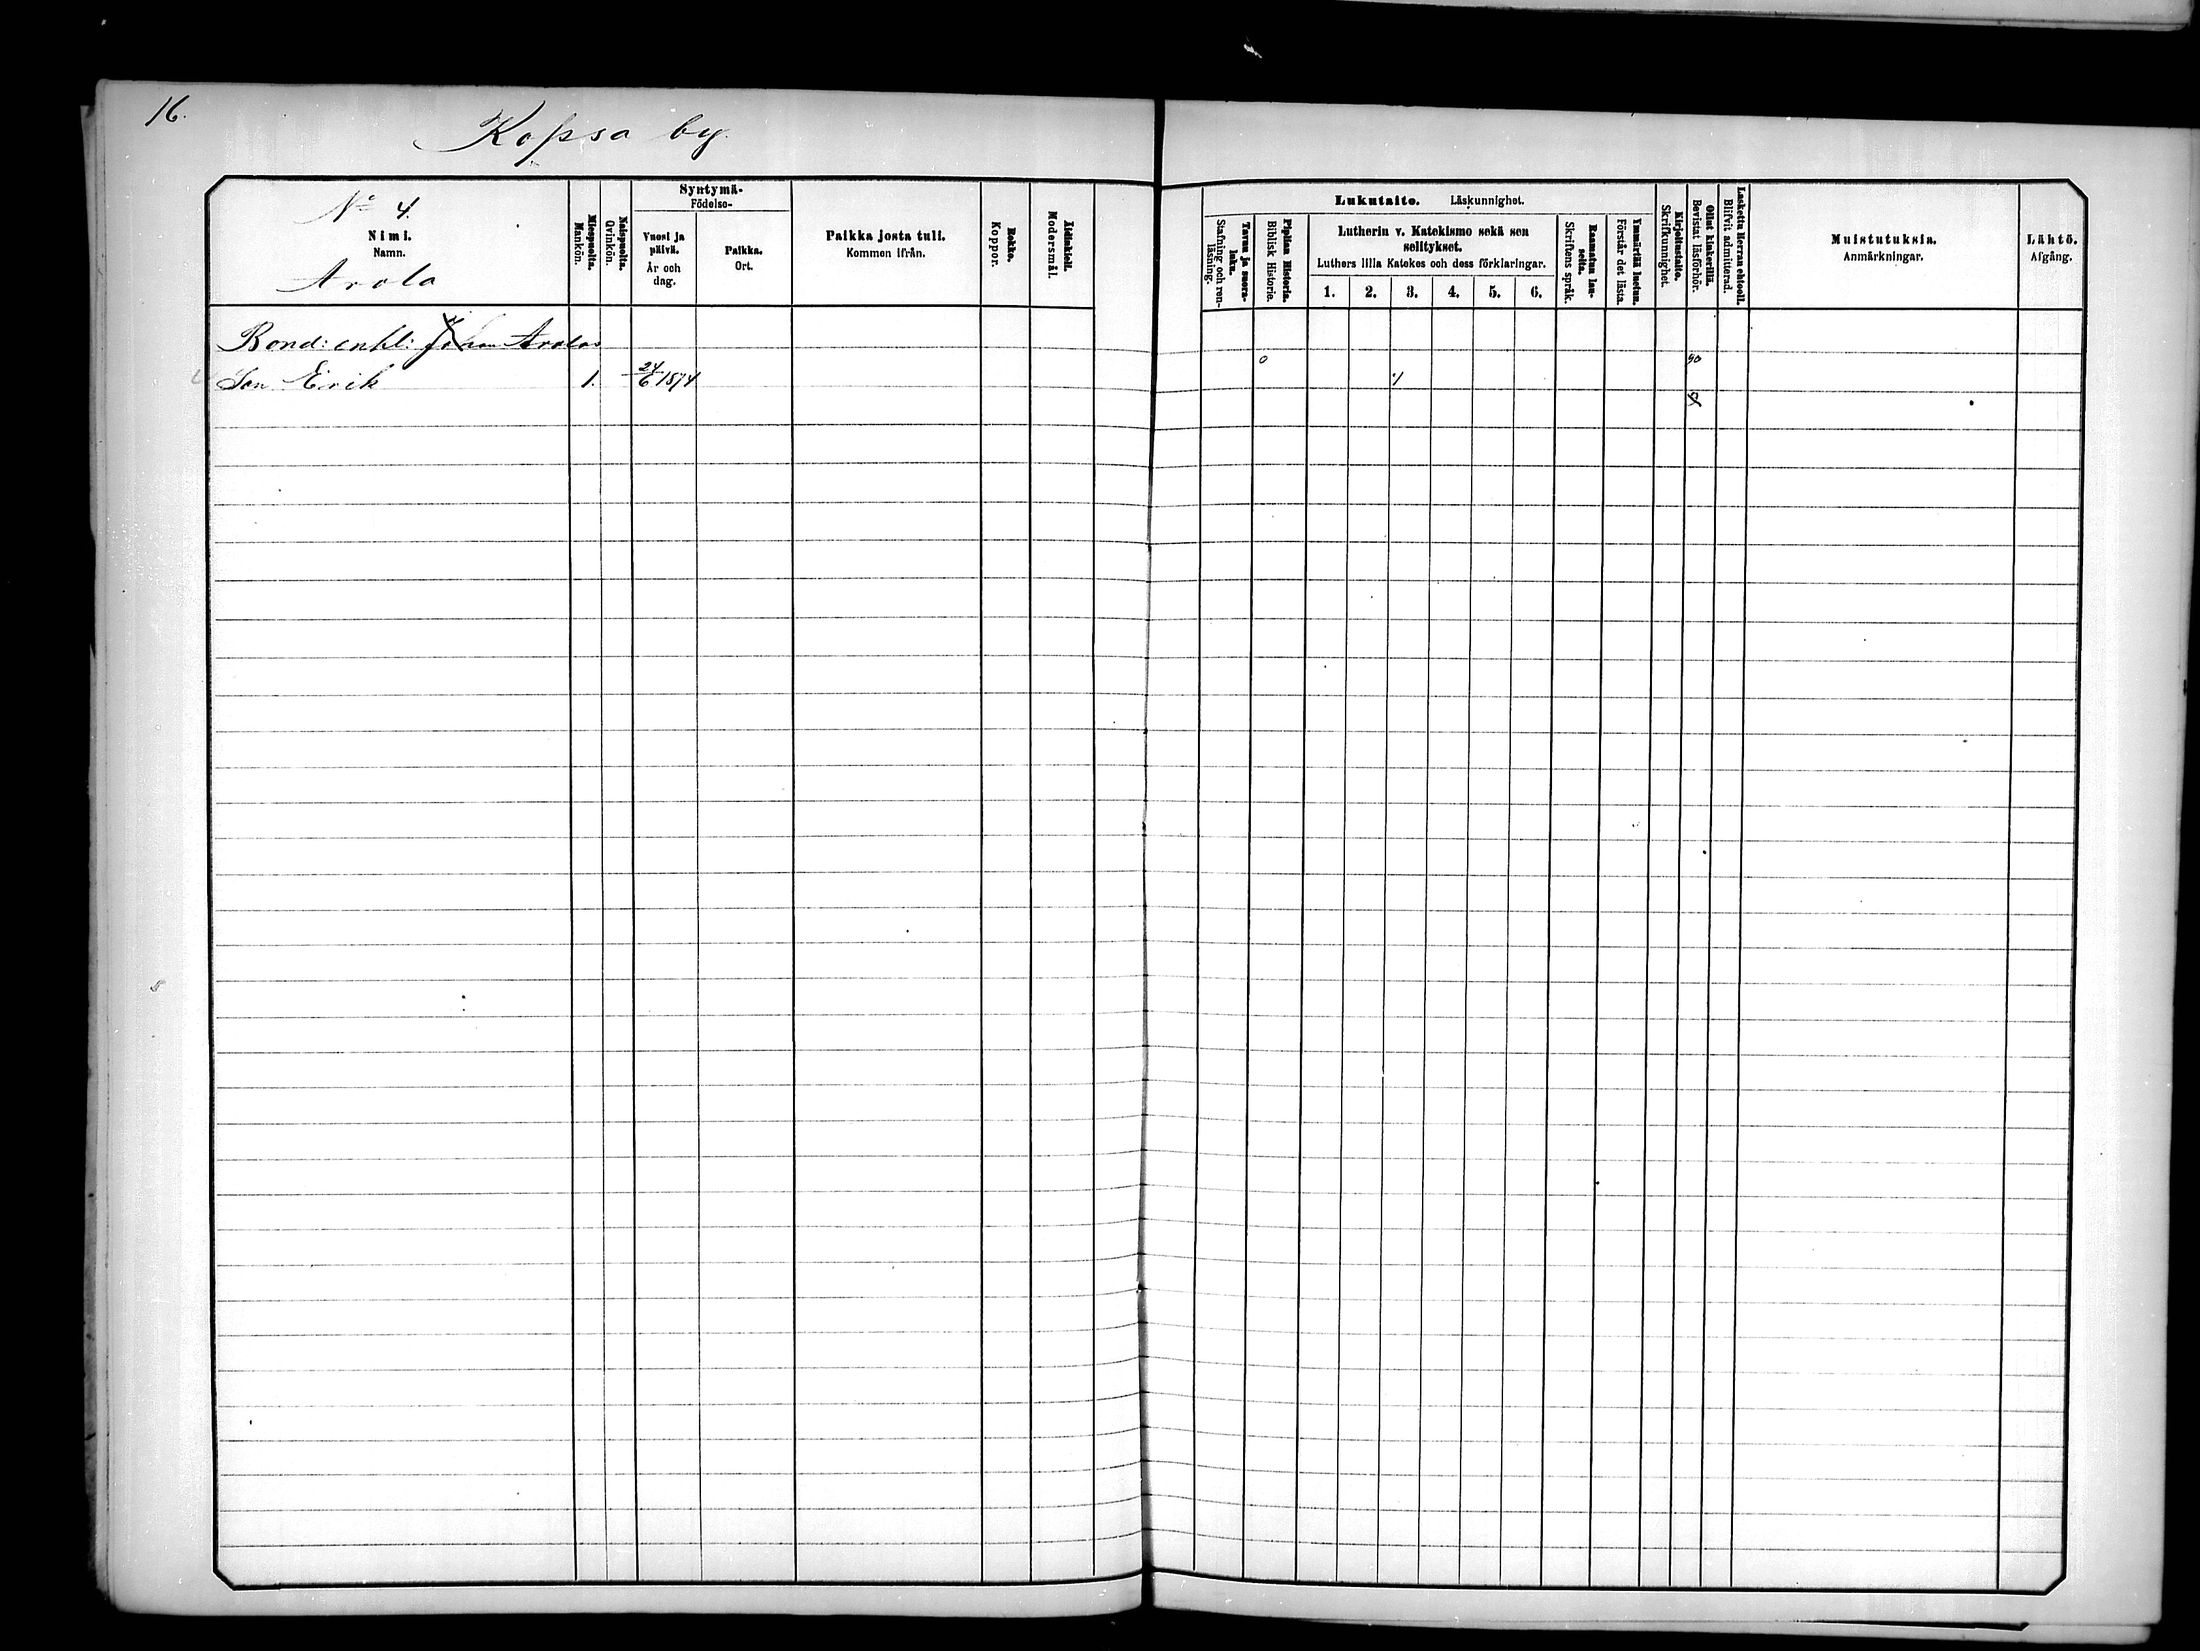 16.
Kopsa by.
No 4.
Nimi.
Namn.
Arola
Miespuolta.
Mankön.
Naispuolta.
Qvinkön.
Syntymä-
Födelse-
Vuosi ja
päivä.
År och
dag.
Paikka.
Ort.
Paikka josta tuli.
Kommen ifrån.
Rokko.
Koppor.
Äidinkieli.
Modersmål.
Lukutaito. Läskunnighet.
Tavuu ja suora-
luku.
Stafning och ren-
läsning.
Piplian Historia.
Biblisk Historie.
Lutherin v. Katekismo sekä sen
selitykset.
Luthers lilla Katekes och dess förklaringar.
1. 2. 3. 4. 5. 6.
Raamatun lau-
seita.
Skriftens språk.
Ymmärtää luetun.
Förstår det lästa.
Kirjoitustaito.
Skrifkunnighet.
Ollut kinkerillä.
Bevistat läsförhör.
Laskettu Herran ehtooll.
Blifvit admitterad.
Muistutuksia.
Anmärkningar.
Lähtö.
Afgång.
Bond: enkl: Johan Arolas
Son Erik 1. 24/6 1874
90